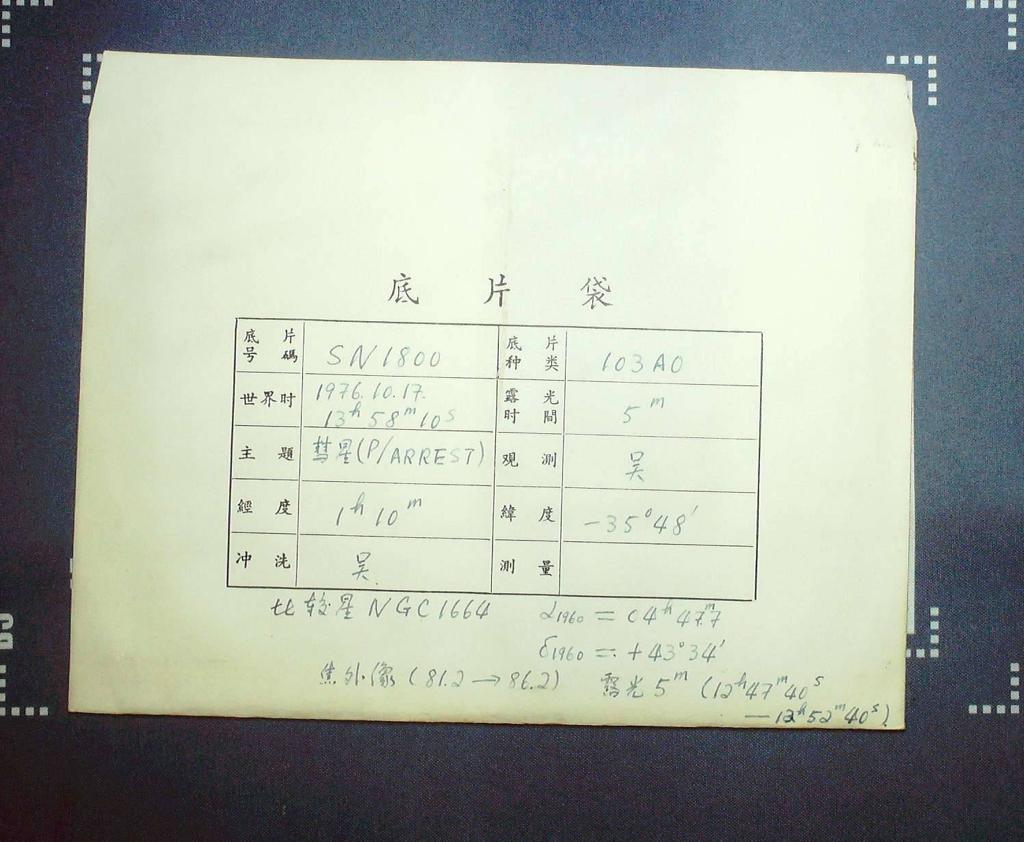 底片袋
底片号碼 SN1800 底片种类 103AO
世界时 1976.10.17. 13ʰ58ᵐ10ˢ 露光时間 5ᵐ
主題 彗星(P/ARREST) 观測 吴
經度 1ʰ10ᵐ 緯度 -35°48′
冲洗 吴 測量
比较星 NGC1664 α1960 = 04ʰ47ᵐ.7
δ1960 = +43°34′
焦外像(81.2→86.2) 露光5ᵐ (12ʰ47ᵐ40ˢ
—12ʰ52ᵐ40ˢ)